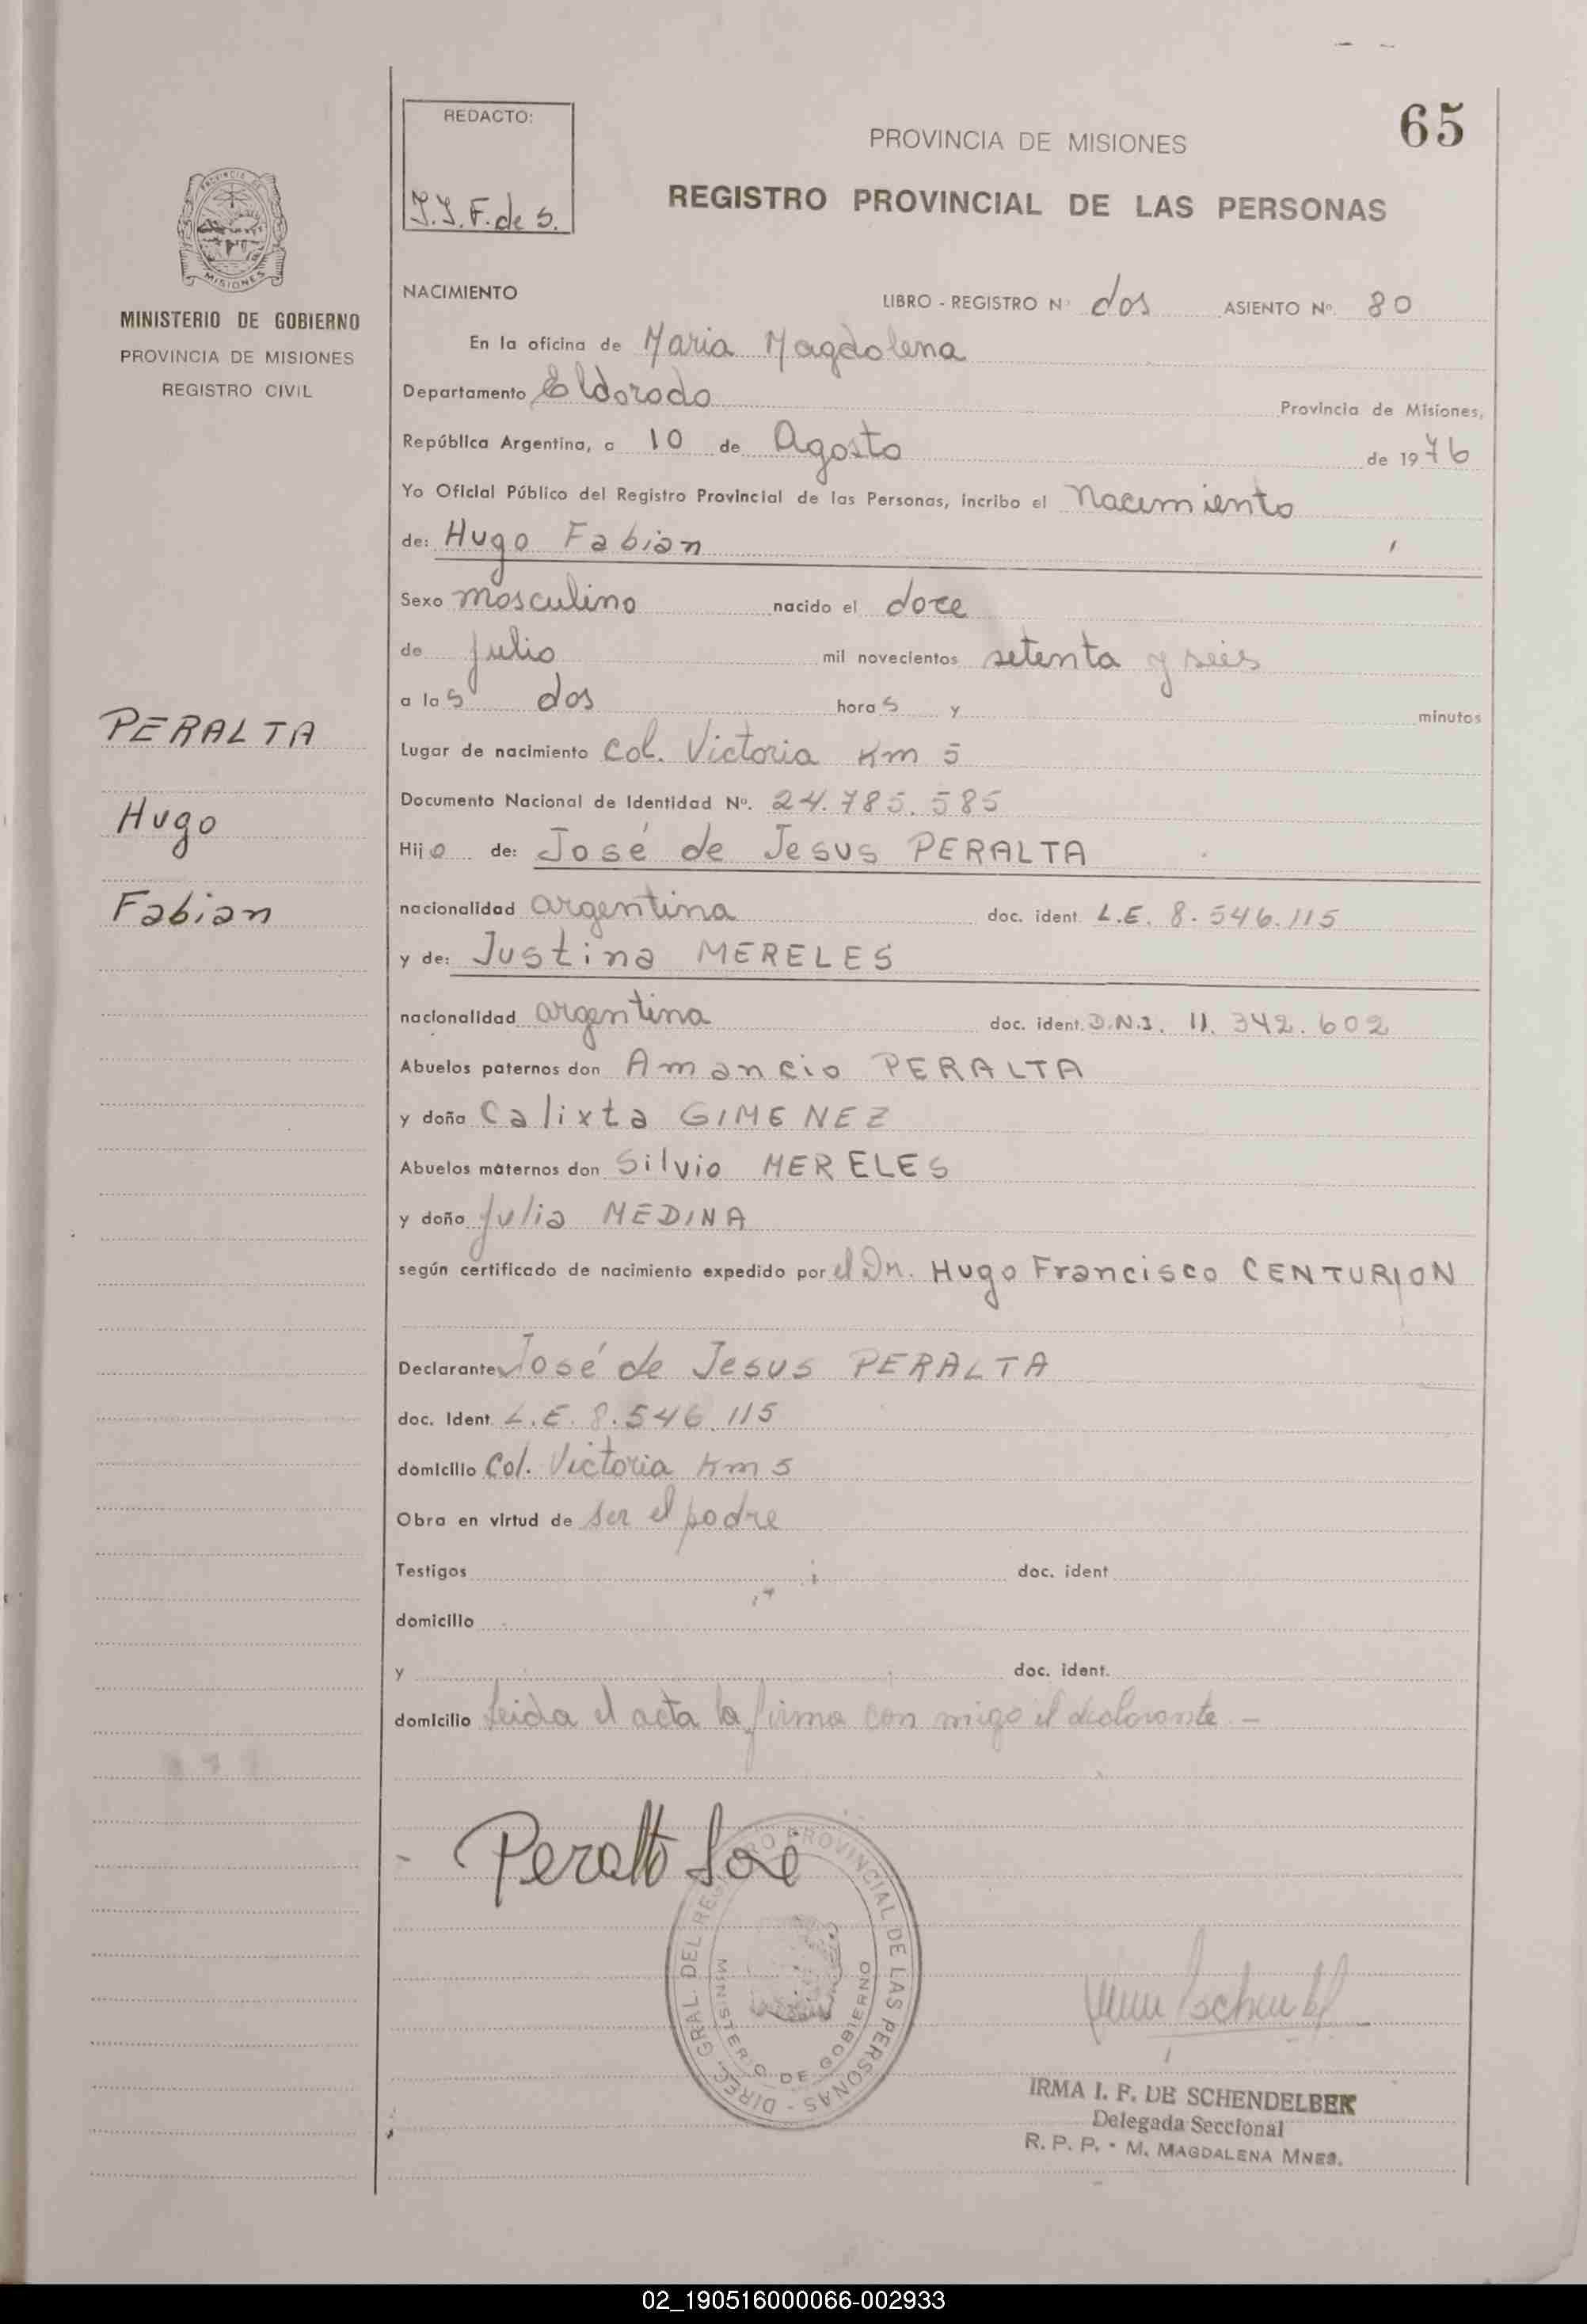 65
REDACTO:
PROVINCIA DE MISIONES
REGISTRO PROVINCIAL DE LAS PERSONAS
F. de S.
PROVINCIA DE
MISIONES
MINISTERIO DE GOBIERNO
PROVINCIA DE MISIONES
REGISTRO CIVIL
NACIMIENTO
LIBRO - REGISTRO Nº dos ASIENTO Nº. 80
En la oficina de Maria Magdalena
Departamento Eldorado Provincia de Misiones,
República Argentina, a 10 de Agosto de 1976
Yo Oficial Público del Registro Provincial de las Personas, incribo el Nacimiento
de: Hugo Fabian
Sexo masculino nacido el doce
de julio mil novecientos setenta y seis
a las dos horas y minutos
PERALTA
Hugo
Fabian
Lugar de nacimiento Col. Victoria Km 5
Documento Nacional de Identidad Nº. 24.785.585
Hijo de: José de Jesus PERALTA
nacionalidad argentina doc. ident. L.E. 8.546.115
y de: Justina MERELES
nacionalidad argentina doc. ident. D.N.I. 11.342.602
Abuelos paternos don Amancio PERALTA
y doña Calixta GIMENEZ
Abuelos maternos don Silvio MERELES
y doña Julia MEDINA
según certificado de nacimiento expedido por el Dr. Hugo Francisco CENTURION
Declarante José de Jesus PERALTA
doc. Ident. L.E. 8.546.115
domicilio Col. Victoria Km 5
Obra en virtud de ser el padre
Testigos doc. ident
domicilio
y doc. ident.
domicilio Leida el acta la firma con migo el declarante -
- Peralta José
DIREC. GRAL. DEL REGISTRO PROVINCIAL DE LAS PERSONAS -
MINISTERIO DE GOBIERNO
IRMA I. F. DE SCHENDELBEK
Delegada Seccional
R. P. P. - M. MAGDALENA MNES.
02_190516000066-002933